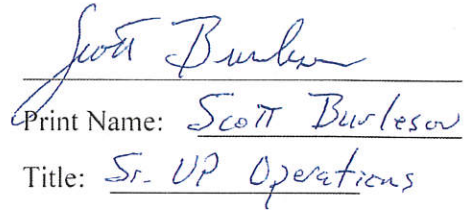 Scott Burleson
Print Name: Scott Burleson
Title: Sr. VP Operations